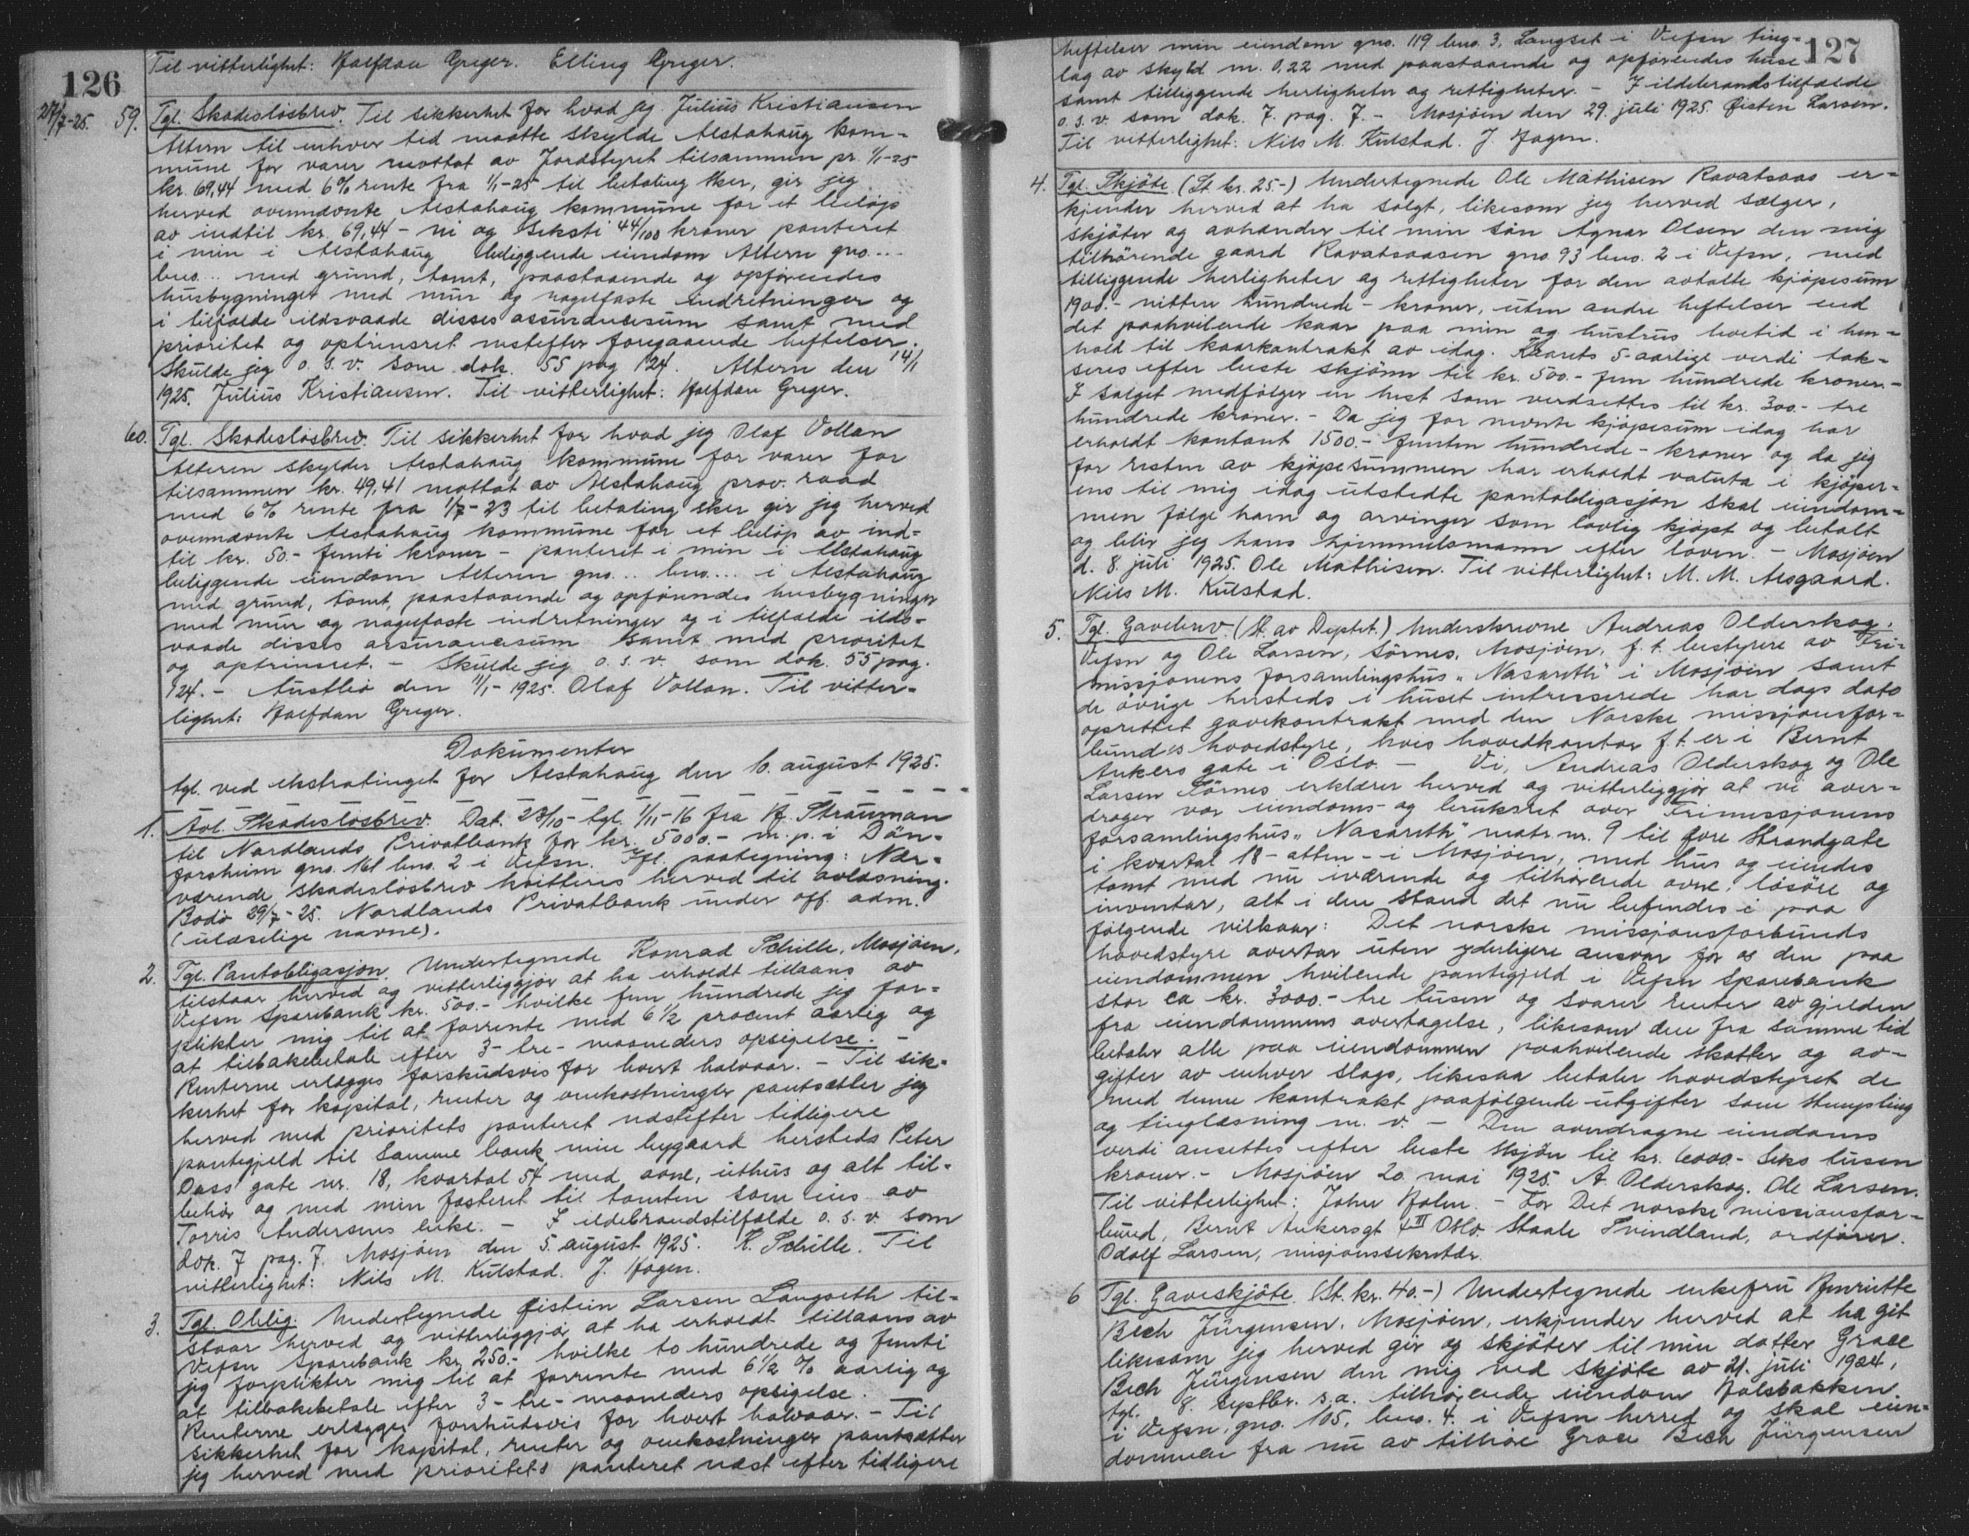 126
Til vitterlighet: Halfdan Greger. Elling Greger.
27/7-25. 59. Tgl. Skadesløsbrev. Til sikkerhet for hvad jeg Julius Kristiansen
Altern til enhver tid maatte skylde Alstahaug kom-
mune for varer mottat av Jordstyret tilsammen pr. 1/1-25
kr. 69,44 med 6% rente fra 1/1-25 til betaling sker, gir jeg
herved ovennævnte Alstahaug kommune for et beløp
av indtil kr. 69,44 - ni og seksti 44/100 kroner panteret
i min i Alstahaug beliggende eiendom Altern gno...
bno... med grund, tomt, paastaaende og opførendes
husbygninger med mur og nagelfaste indretninger og
i tilfælde ildsvaade disses assurancesum samt med
prioritet og optrinsret næstefter foregaaende heftelser.
Skulde jeg o.s.v. som dok. 55 pag 124. Altern den 14/1
1925. Julius Kristiansen. Til vitterlighet: Halfdan Greger.
60. Tgl. Skadesløsbrev. Til sikkerhet for hvad jeg Olaf Vollan
Alteren skylder Alstahaug kommune for varer for
tilsammen kr. 49,41 mottat av Alstahaug prov. raad
med 6% rente fra 1/7-23 til betaling sker gir jeg herved
ovennævnte Alstahaug kommune for et beløp av ind-
til kr. 50.- femti kroner - panterit i min i Alstahaug
beliggende eiendom Alteren gno... bno... i Alstahaug
med grund, tomt, paastaaende og opførendes husbygninger
med mur og nagelfaste indretninger og i tilfælde ilds-
vaade disses assurancesum samt med prioritet
og optrinsret. - Skulde jeg o.s.v. som dok. 55 pag.
124. - Austbø den 11/1-1925. Olaf Vollan. Til vitter-
lighet: Halfdan Greger.
Dokumenter
tgl. ved ekstratinget for Alstahaug den 10. august 1925.
1. Avl. Skadesløsbrev. Dat. 28/10- tgl. 1/11-16 fra H. Strauman
til Nordlands Privatbank for kr. 5000.- m.p. i Dån-
forshum gno. 161 bno. 2 i Vefsn. Ifl. paategning: Nær-
værende skadesløsbrev kvitteres herved til avløsning.
Bodø 29/7-25. Nordlands Privatbank under off. adm.
(ulæselige navne).
2. Tgl. Pantobligasjon. Undertegnede Konrad Schille, Mosjøen,
tilstaar herved og vitterliggjør at ha erholdt tillaans av
Vefsn Sparebank kr. 500.- hvilke fem hundrede jeg for-
plikter mig til at forrente med 6 1/2 procent aarlig og
at tilbakebetale efter 3-tre-maaneders opsigelse. -
Renterne erlægges forskudsvis for hvert halvaar. - Til sik-
kerhet for kapital, renter og omkostninger pantsætter jeg
herved med prioritets panteret næstefter tidligere
pantegjeld til samme bank min bygaard hersteds Peter
Dass gate nr. 18, kvartal 54 med avne, uthus og alt til-
behør og med min festeret til tomten som eies av
Torris Andersens enke. - I ildebrandstilfælde o.s.v. som
dok. 7 pag. 7. Mosjøen den 5. august 1925. K. Schille. Til
vitterlighet: Nils M. Kulstad. J. Hagen.
3. Tgl. Oblig. Undertegnede Øistein Larsen Langseth til-
staar herved og vitterliggjør at ha erholdt tillaans av
Vefsn Sparebank kr. 250.- hvilke to hundrede og femti
jeg forplikter mig til at forrente med 6 1/2 % aarlig og
at tilbakebetale efter 3-tre-maaneders opsigelse.
Renterne erlægges forskudsvis for hvert halvaar. - Til
sikkerhet for kapital, renter og omkostninger pantsætter
jeg herved med prioritets panteret næst efter tidligere
127
heftelser min eiendom gno. 119 bno. 3, Langset i Vefsn ting-
lag av skyld m. 0,22 med paastaaende og opførendes huse
samt tilliggende herligheter og rettigheter. - I ildebrandstilfælde
o.s.v. som dok. 7. pag. 7. - Mosjøen den 29. juli 1925. Øistein Larsen.
Til vitterlighet: Nils M. Kulstad. J. Hagen.
4. Tgl. Skjøte. (St. kr. 25-) Undertegnede Ole Mathisen Ravatsaas er-
kjender herved at ha solgt, likesom jeg herved sælger,
skjøter og avhænder til min søn Agnar Olsen den mig
tilhørende gaard Ravatsaasen gno. 93 bno. 2 i Vefsn, med
tilliggende herligheter og rettigheter for den avtalte kjøpesum
1900.- nitten hundrede - kroner, uten andre heftelser end
det paahvilende kaar paa min og hustrus levetid i hen-
hold til kaarkontrakt av idag. Kaarets 5-aarlige verdi tak-
seres efter beste skjønn til kr. 500.- fem hundrede kroner.-
I salget medfølger en hest som verdsettes til kr. 300.- tre
hundrede kroner. - Da jeg for nævnte kjøpesum idag har
erholdt kontant 1500.- femten hundrede - kroner og da jeg
for resten av kjøpesummen har erholdt valuta i kjøper-
ens til mig idag utstedte pantobligasjon skal eiendom-
men følge ham og arvinger som lovlig kjøpt og betalt
og blir jeg hans hjemmelsmann efter loven. - Mosjøen
d. 8. juli 1925. Ole Mathisen. Til vitterlighet: M. M. Aasgaard.
Nils M. Kulstad.
5. Tgl. Gavebrev. (St. av Deptet.) Underskrevne Andreas Olderskog,
Vefsn og Ole Larsen, Sørnes, Mosjøen, f.t. bestyrere av Fri-
missjonens forsamlingshus "Nasareth" i Mosjøen samt
de øvrige hersteds i huset interesserede har dags dato
oprettet gavekontrakt med den Norske missjonsfor-
bunds hovedstyre, hvis hovedkontor f.t. er i Bernt
Ankers gate i Oslo. - Vi, Andreas Olderskog og Ole
Larsen Sørnes erklærer herved og vitterliggjør at vi over-
drager vor eiendoms- og bruksret over Frimissjonens
forsamlingshus "Nasareth" matr. nr. 9 til øvre Strandgate
i kvartal 18 - atten - i Mosjøen, med hus og eiendes
tomt med nu værende og tilhørende ovne, løsøre og
inventar, alt i den stand det nu befindes i paa
følgende vilkaar: Det norske missjonsforbunds
hovedstyre overtar uten yderligere ansvar for os den paa
eiendommen hvilende pantegjeld i Vefsn Sparebank
stor ca kr. 3000.- tre tusen og svarer renter av gjelden
fra eiendommens overtagelse, likesom den fra samme tid
betaler alle paa eiendommen paahvilende skatter og av-
gifter av enhver slags, likesaa betaler hovedstyret de
med denne kontrakt paafølgende utgifter som stempling
og tinglæsning m.v. - Den overdragne eiendoms
verdi ansettes efter beste skjøn til kr. 6000.- seks tusen
kroner. - Mosjøen 20. mai 1925. A. Olderskog. Ole Larsen.
Til vitterlighet: John Holm. - For Det norske missionsfor-
bund, Bernt Ankersgt 4 III Oslo. Staale Svindland, ordfører.
Odolf Larsen, misjonssekretær.
6 Tgl. Gaveskjøte. (St. kr. 40.-) Undertegnede enkefru Henriette
Bech Jürgensen, Mosjøen, erkjender herved at ha git
likesom jeg herved gir og skjøter til min datter Grace
Bech Jürgensen den mig ved skjøte av 21. juli 1924,
tgl. 8. septbr. s.a. tilhørende eiendom Halsbakken
i Vefsn, gno. 105, bno. 4. i Vefsn herred og skal eien-
dommen fra nu av tilhøre Grace Bech Jürgensen